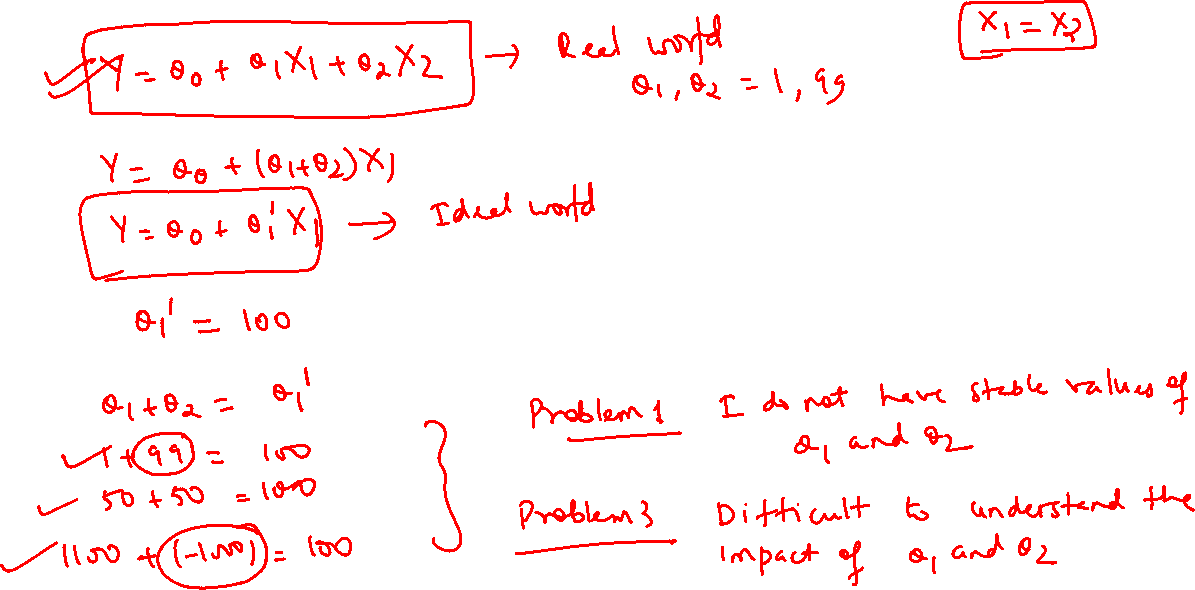 Y = θ0 + θ1X1 + θ2X2 → Real world
X1 = X2
θ1, θ2 = 1, 99
Y = θ0 + (θ1+θ2)X1
Y = θ0 + θ1' X1 → Ideal world
θ1' = 100
θ1 + θ2 = θ1'
1 + 99 = 100
50 + 50 = 100
1100 + (-1000) = 100
Problem 1 I do not have stable values of
θ1 and θ2
Problem 3 Difficult to understand the
impact of θ1 and θ2